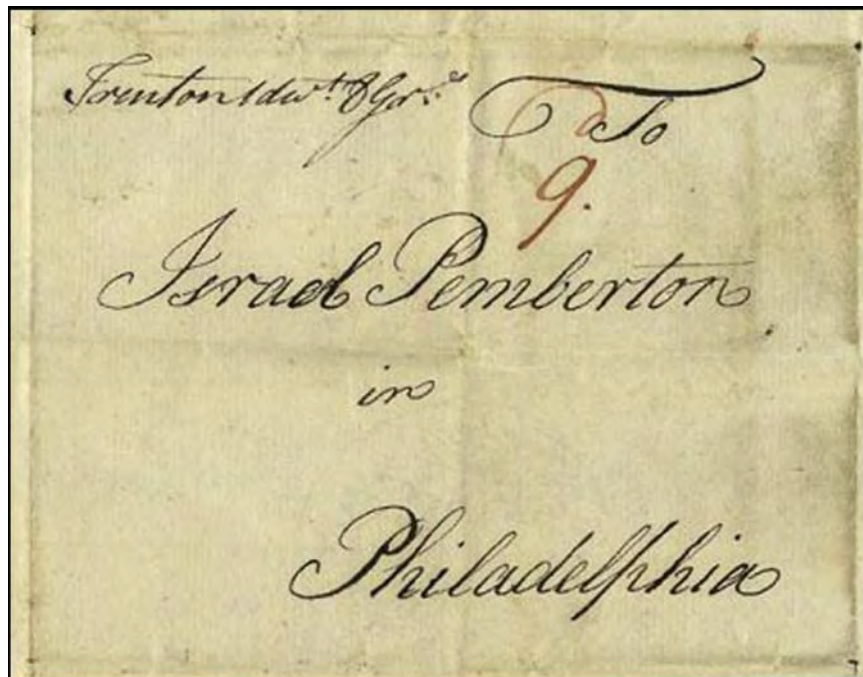 Trenton 1 dwt. 8 Grs.
To
9.
Israel Pemberton
in
Philadelphia